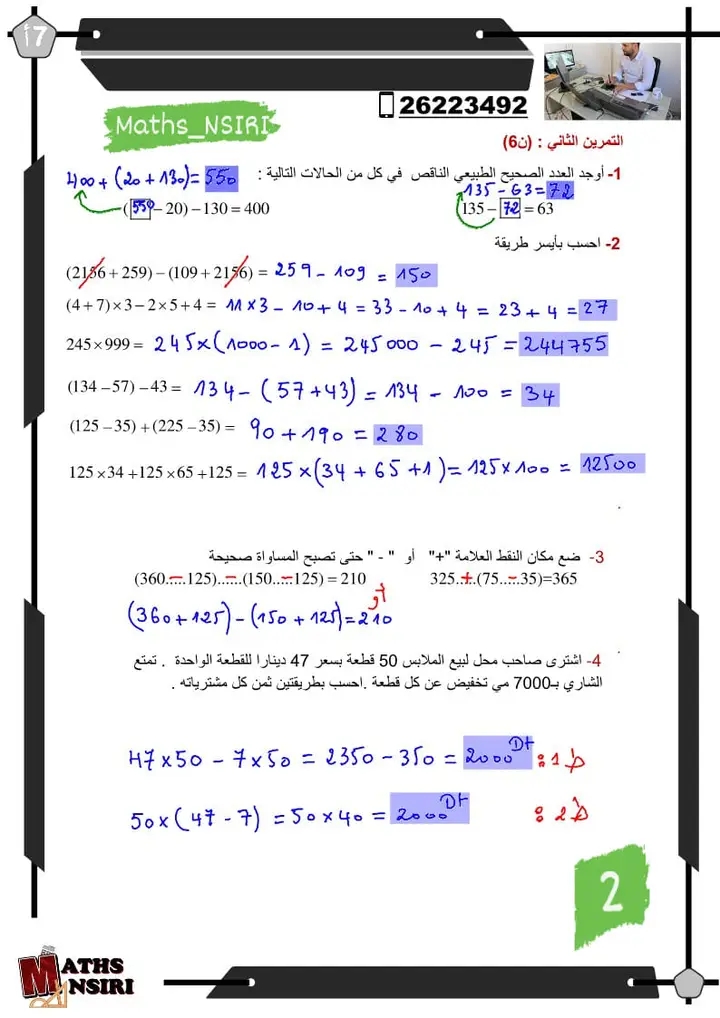 7أ
Maths_NSIRI
26223492
التمرين الثاني : (6ن)
1- أوجد العدد الصحيح الطبيعي الناقص في كل من الحالات التالية :
400 + (20 + 130) = 550
135 - 63 = 72
(550 - 20) - 130 = 400
135 - 72 = 63
2- احسب بأيسر طريقة
(2156 + 259) - (109 + 2156) = 259 - 109 = 150
(4 + 7) × 3 - 2 × 5 + 4 = 11 × 3 - 10 + 4 = 33 - 10 + 4 = 23 + 4 = 27
245 × 999 = 245 × (1000 - 1) = 245000 - 245 = 244755
(134 - 57) - 43 = 134 - (57 + 43) = 134 - 100 = 34
(125 - 35) + (225 - 35) = 90 + 190 = 280
125 × 34 + 125 × 65 + 125 = 125 × (34 + 65 + 1) = 125 × 100 = 12500
3- ضع مكان النقط العلامة "+" أو " - " حتى تصبح المساواة صحيحة
(360..-..125)..-..(150..-..125) = 210
325..+..(75..-..35)=365
أو
(360 + 125) - (150 + 125) = 210
4- اشترى صاحب محل لبيع الملابس 50 قطعة بسعر 47 دينارا للقطعة الواحدة . تمتع
الشاري بـ7000 مي تخفيض عن كل قطعة .احسب بطريقتين ثمن كل مشترياته .
47 × 50 - 7 × 50 = 2350 - 350 = 2000 Dt ط1:
50 × (47 - 7) = 50 × 40 = 2000 Dt ط2:
2
MATHS
NSIRI